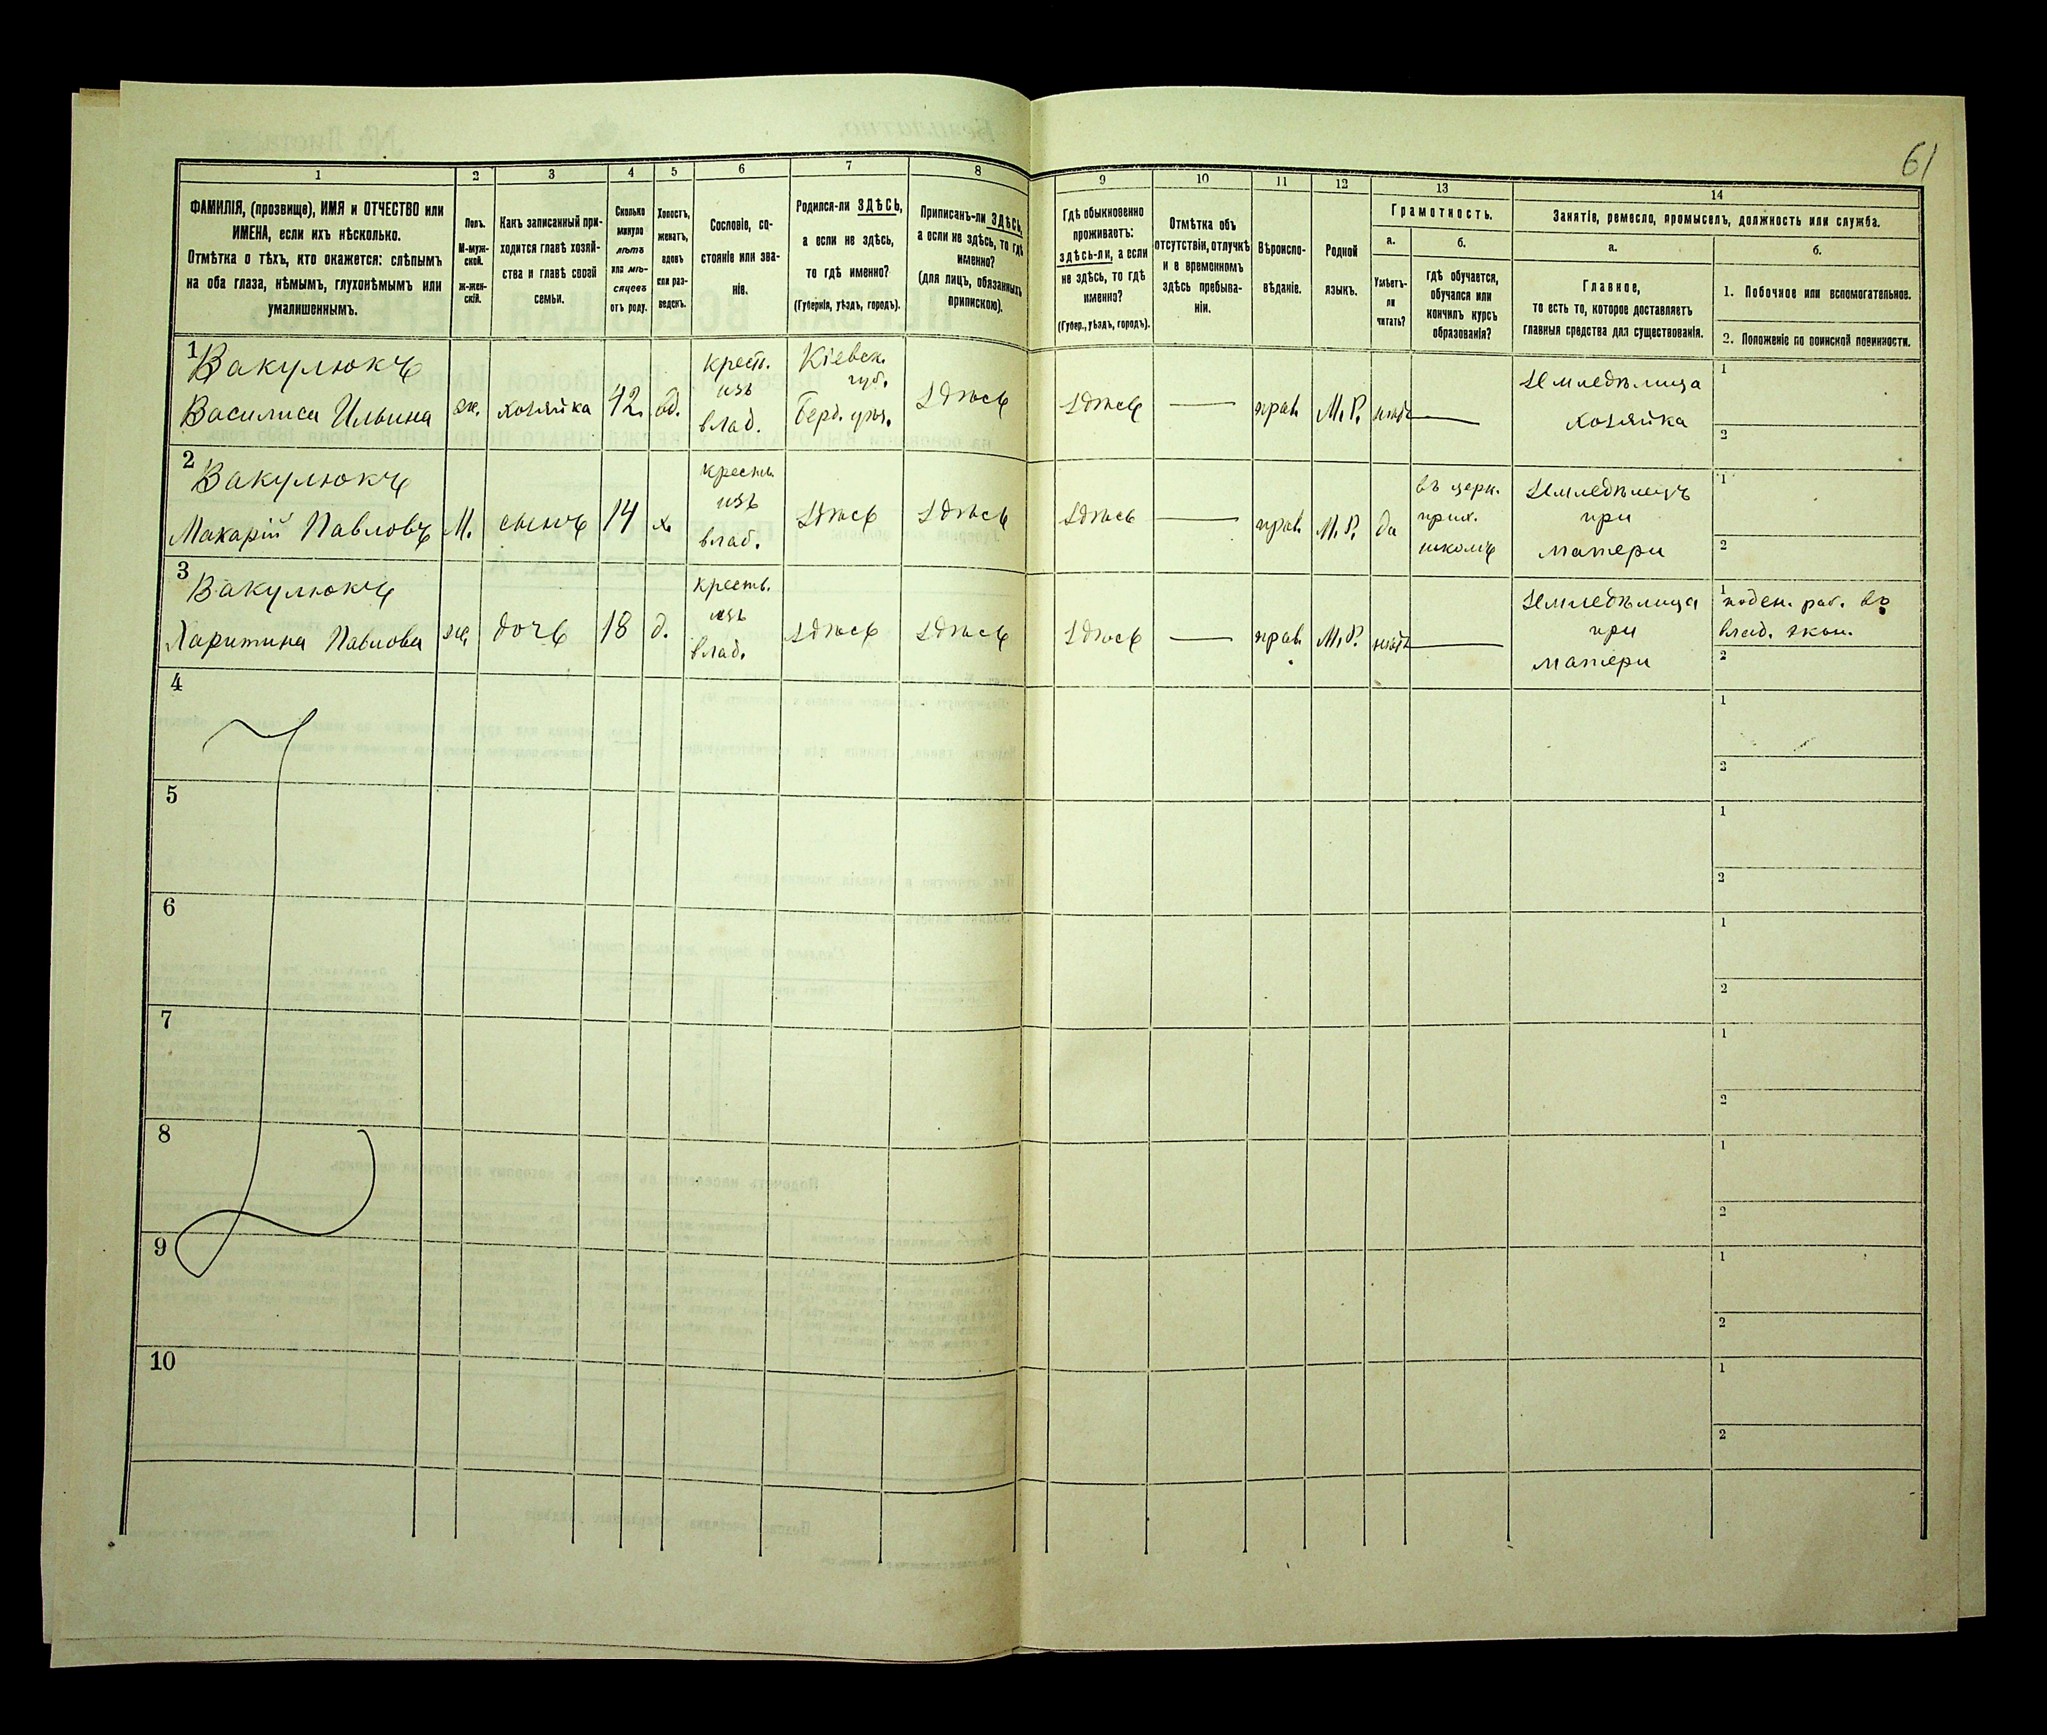 61
1 2 3 4 5 6 7 8 9 10 11 12 13 14
ФАМИЛІЯ, (прозвище), ИМЯ и ОТЧЕСТВО или
ИМЕНА, если ихъ нѣсколько.
Отмѣтка о тѣхъ, кто окажется: слѣпымъ
на оба глаза, нѣмымъ, глухонѣмымъ или
умалишеннымъ.
Полъ.
М-муж-
ской.
Ж-жен-
скій.
Какъ записанный при-
ходится главѣ хозяй-
ства и главѣ своей
семьи.
Сколько
минуло
лѣтъ
или мѣ-
сяцевъ
отъ роду.
Холостъ,
женатъ,
вдовъ
или раз-
веденъ.
Сословіе, со-
стояніе или зва-
ніе.
Родился-ли ЗДѢСЬ,
а если не здѣсь,
то гдѣ именно?
(Губернія, уѣздъ, городъ).
Приписанъ-ли ЗДѢСЬ,
а если не здѣсь, то гдѣ
именно?
(для лицъ, обязанныхъ
припискою).
Гдѣ обыкновенно
проживаетъ:
здѣсь-ли, а если
не здѣсь, то гдѣ
именно?
(Губер., уѣздъ, городъ).
Отмѣтка объ
отсутствіи, отлучкѣ
и о временномъ
здѣсь пребыва-
ніи.
Вѣроиспо-
вѣданіе.
Родной
языкъ.
Грамотность.
а.
Умѣетъ-
ли
читать?
б.
гдѣ обучается,
обучался или
кончилъ курсъ
образованія?
Занятіе, ремесло, промыселъ, должность или служба.
а.
Главное,
то есть то, которое доставляетъ
главныя средства для существованія.
б.
1. Побочное или вспомогательное.
2. Положеніе по воинской повинности.
1
Вакулюкъ
Василиса Ильина
ж.
хозяйка
42.
вд.
крест.
изъ
влад.
Кіевск.
губ.
Берд. уѣз.
здѣсь
здѣсь
—
прав
М.Р.
нѣтъ
—
Земледѣлица
хозяйка
1
2
2
Вакулюкъ
Макарій Павловъ
М.
сынъ
14
х.
крестъ.
изъ
влад.
здѣсь
здѣсь
здѣсь
—
прав
М.Р.
да
въ церк.
прих.
школѣ
Земледѣлецъ
при
матери
1
2
3
Вакулюкъ
Харитина Павлова
ж.
дочь
18
д.
кресть.
изъ
влад.
здѣсь
здѣсь
здѣсь
—
прав
М.Р.
нѣтъ
—
Земледѣлица
при
матери
1
поден. раб. въ
влад. экон.
2
4
1
2
5
1
2
6
1
2
7
1
2
8
1
2
9
1
2
10
1
2